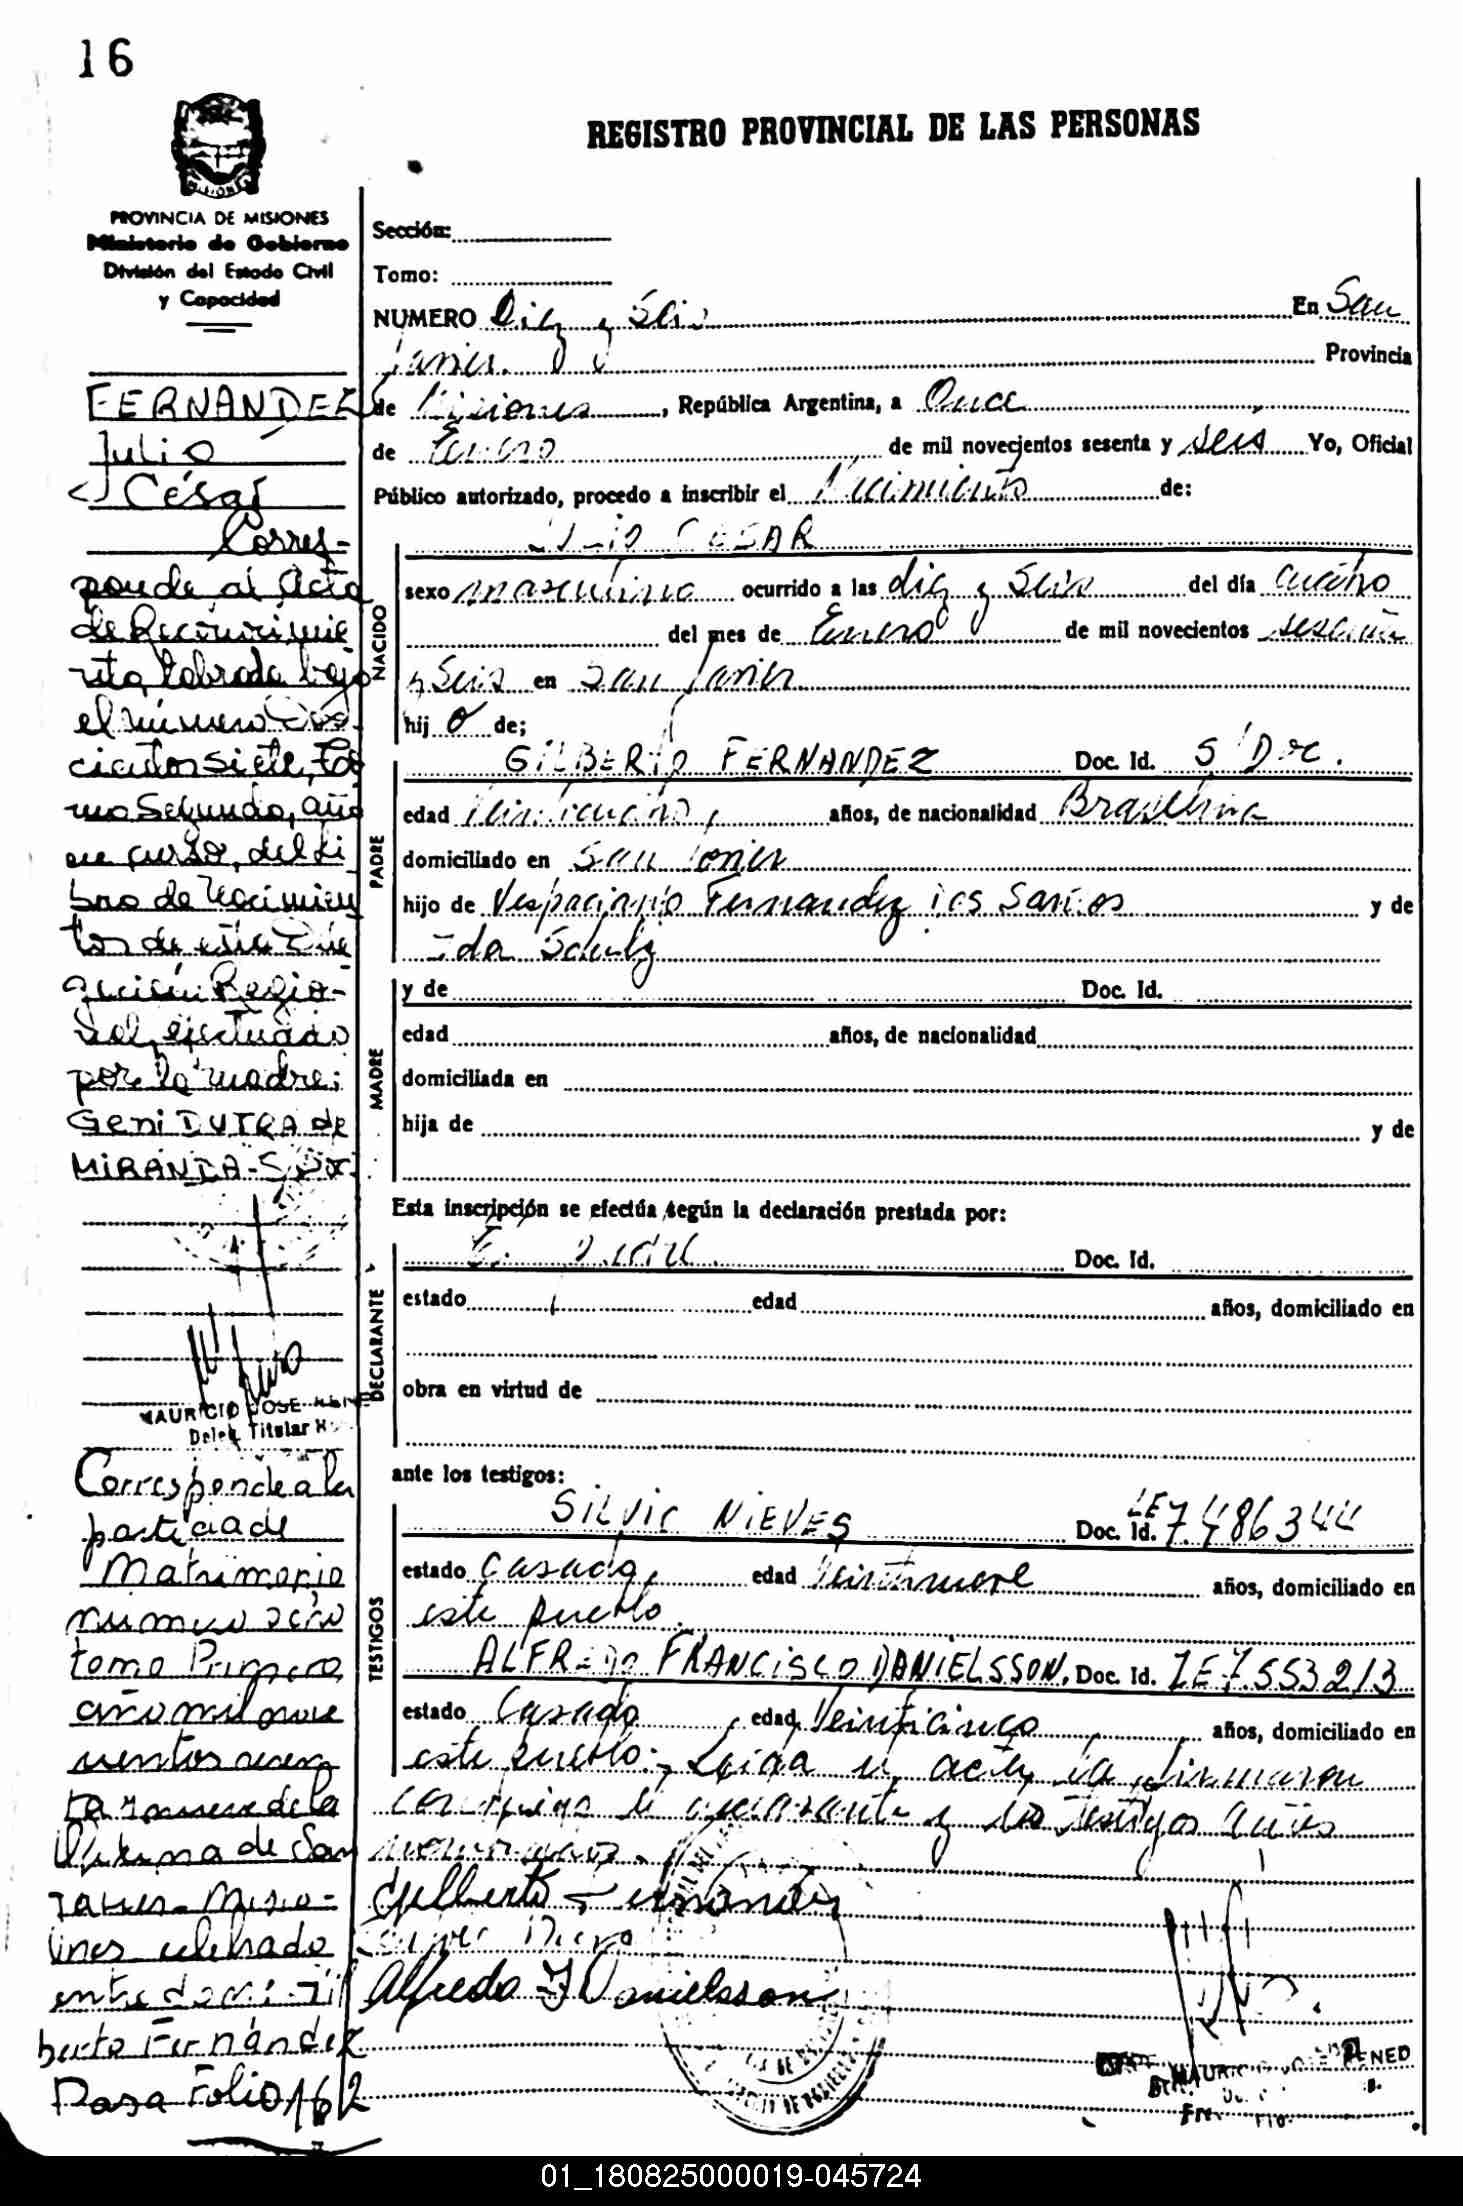 16
REGISTRO PROVINCIAL DE LAS PERSONAS
MISIONES
PROVINCIA DE MISIONES
Ministerio de Gobierno
División del Estado Civil
y Capacidad
FERNANDEZ
Julio
César
Corres-
ponde al Acta
de Reconocimie
nto, labrada bajo
el número Dos-
cientos siete, To
mo Segundo, año
en curso, del Li
bro de Nacimien
tos de esta
Regio-
nal, efectuado
por la madre:
Geni DUTRA de
MIRANDA - S/Doc.
MAURICIO JOSE
Deleg. Titular
Corresponde a la
partida de
Matrimonio
numero
tomo Primero
año mil nove
cientos
de la
Oficina de San
Javier - Misio-
nes celebrado
entre don: Gil
berto Fernández
Pasa Folio 162
Sección:
Tomo:
NUMERO Diez y Seis En San
Javier. Provincia
de Misiones, República Argentina, a Once
de Enero de mil novecientos sesenta y seis Yo, Oficial
Público autorizado, procedo a inscribir el Nacimiento de:
NACIDO
JULIO CESAR
sexo masculino ocurrido a las diez y Seis del día cuatro
del mes de Enero de mil novecientos sesenta
y Seis en San Javier
hijo de;
PADRE
GILBERTO FERNANDEZ Doc. Id. S/Doc.
edad años, de nacionalidad Brasilera
domiciliado en San Javier
hijo de Vespaciano Fernandez dos Santos y de
Ida Schulz
MADRE
y de Doc. Id.
edad años, de nacionalidad
domiciliada en
hija de y de
Esta inscripción se efectúa según la declaración prestada por:
DECLARANTE
El Padre Doc. Id.
estado edad años, domiciliado en
obra en virtud de
ante los testigos:
TESTIGOS
SILVIO NIEVES Doc. Id. LE 7.486344
estado Casado, edad Veintinueve años, domiciliado en
este pueblo
ALFREDO FRANCISCO DANIELSSON. Doc. Id. LE 7.553213
estado Casado edad Veinticinco años, domiciliado en
este pueblo.- Leída el acta, la firmaron
conmigo el declarante y los testigos antes
nombrados.
Gilberto Fernandez
Alfredo F Danielsson
MAURICIO JOSE BENED
01_180825000019-045724